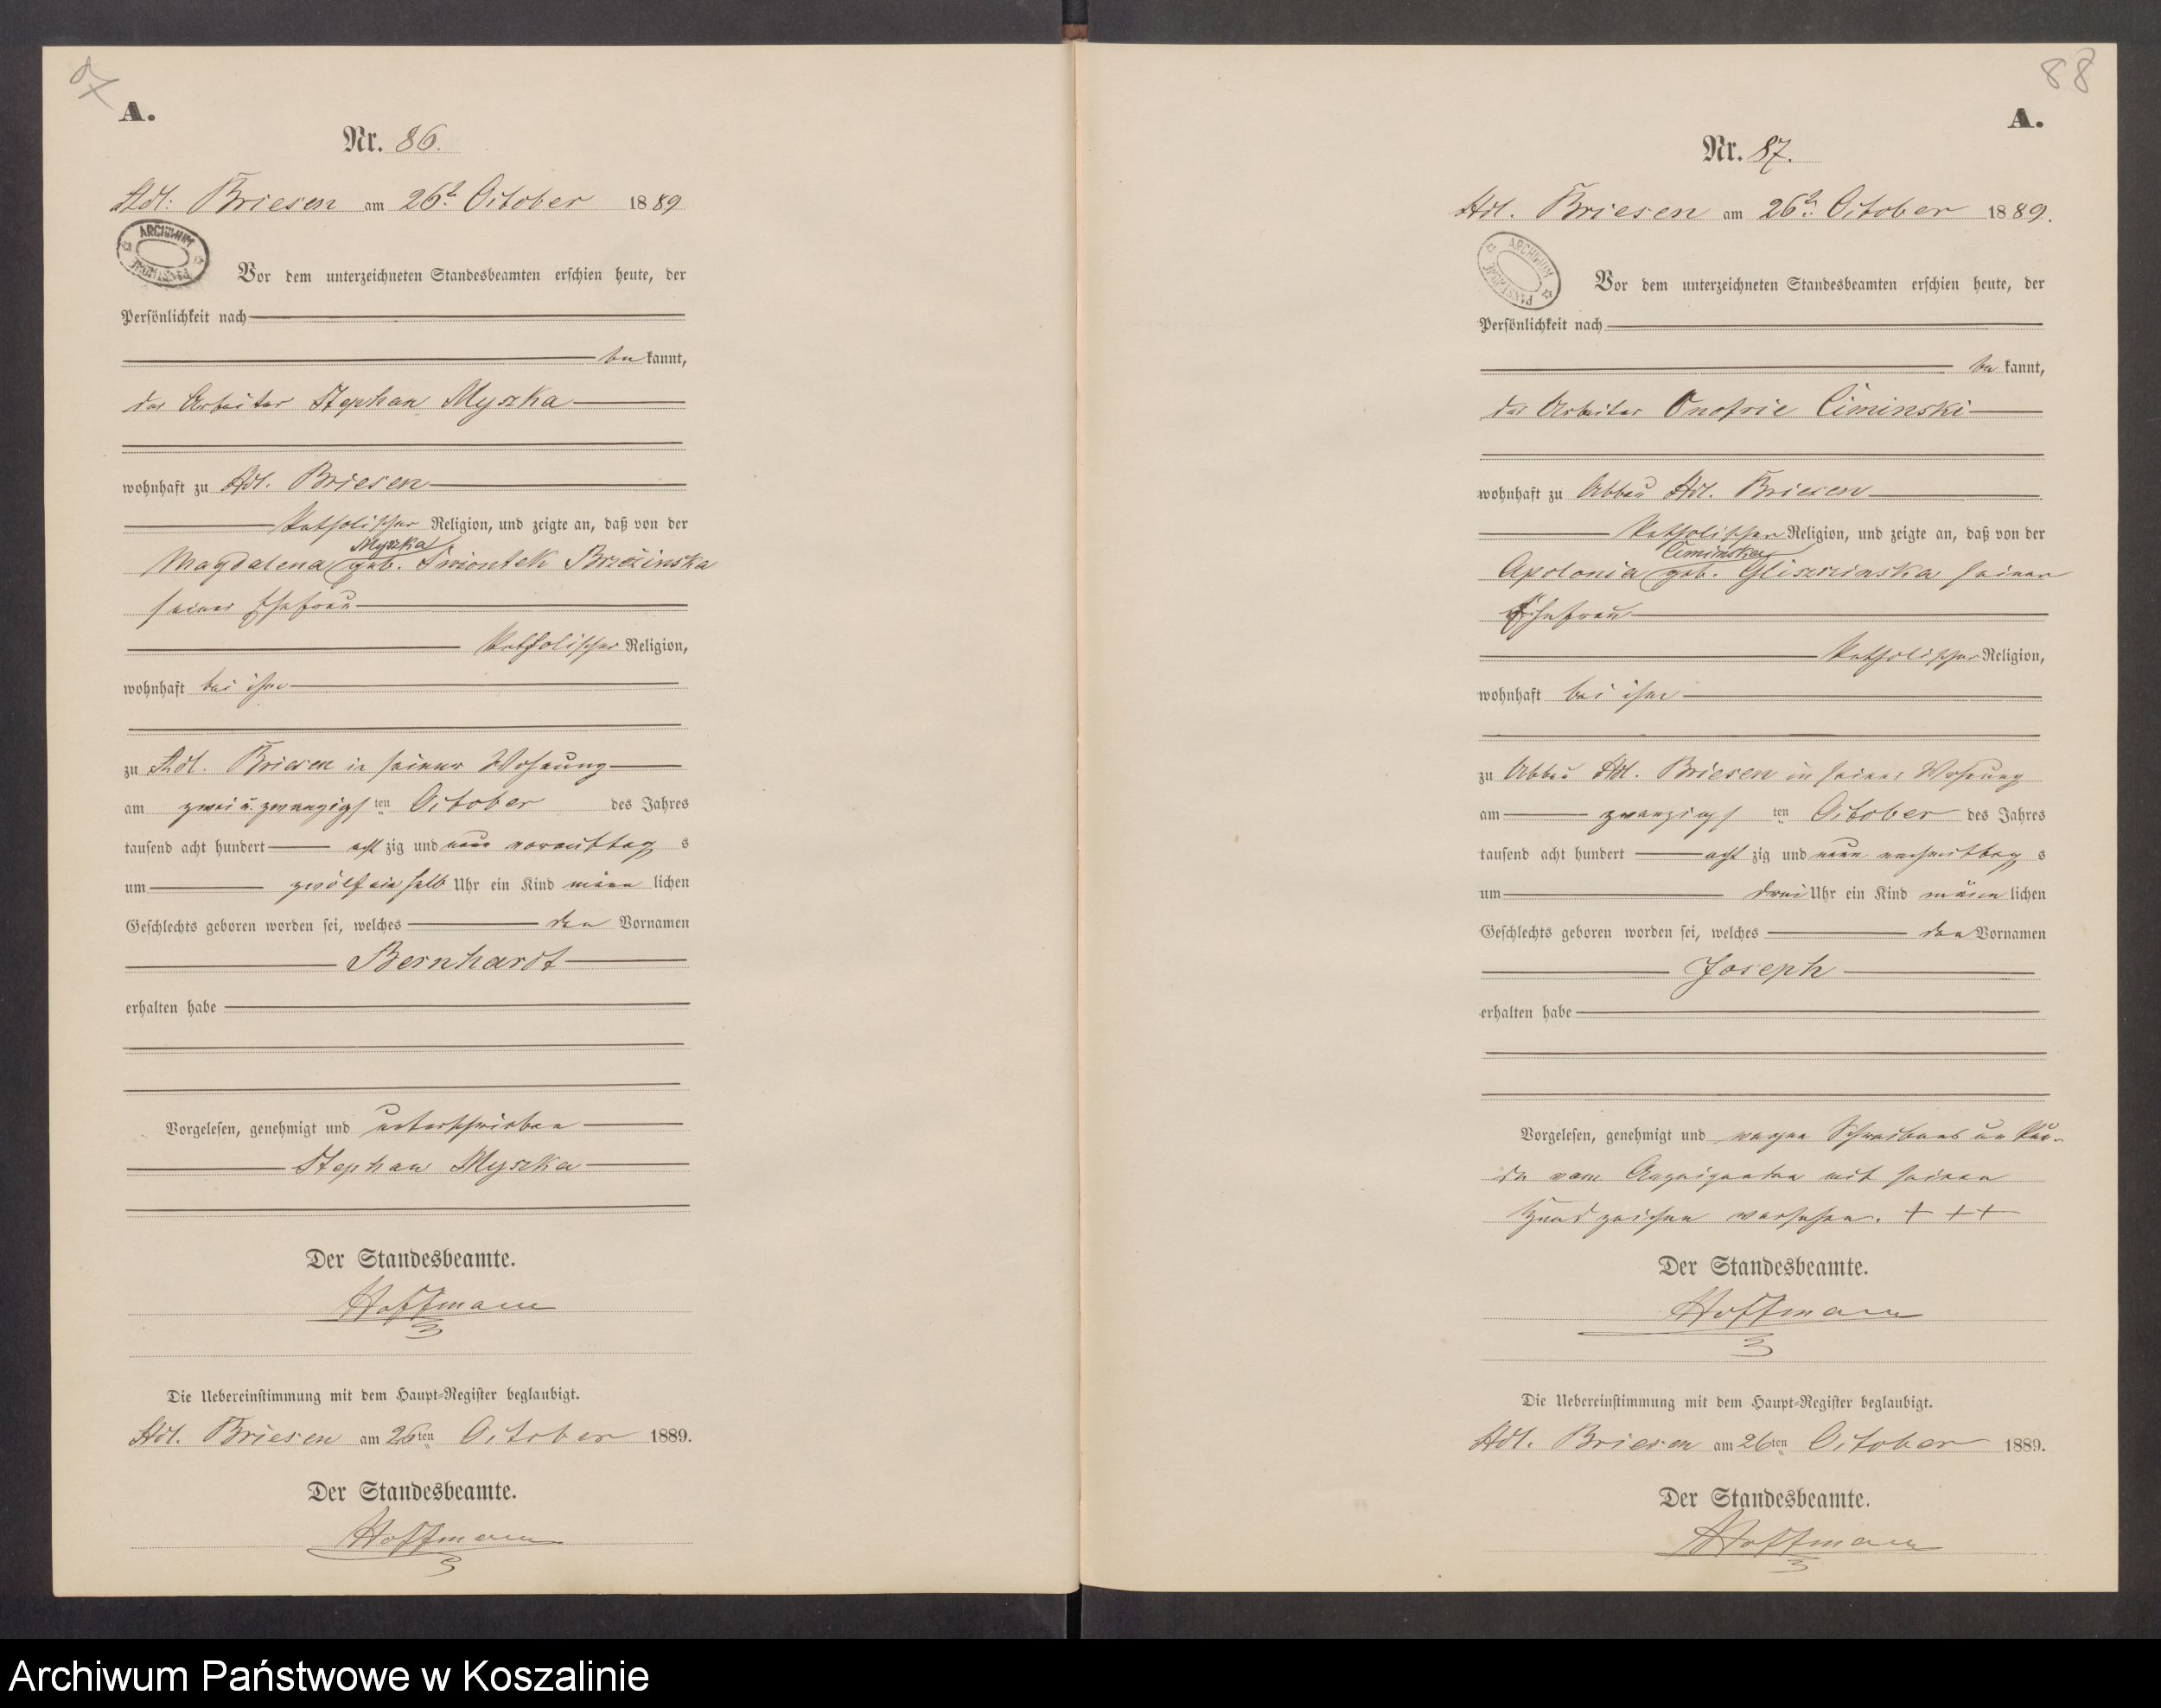 A.
Nr. 86.
Adl: Briesen am 26t October 1889
ARCHIWUM
Vor dem unterzeichneten Standesbeamten erschien heute, der
Persönlichkeit nach
be kannt,
der Arbeiter Stephan Myszka
wohnhaft zu Adl. Briesen
katholischer Religion, und zeigte an, daß von der
Myszka
Magdalena geb. Swiontek Brzezinska
seiner Ehefrau
katholischer Religion,
wohnhaft bei ihm
zu Adl. Briesen in seiner Wohnung
am zwei u. zwanzigs ten October des Jahres
tausend acht hundert acht zig und neun vormittag s
um zwölf ein halb Uhr ein Kind männ lichen
Geschlechts geboren worden sei, welches den Vornamen
Bernhardt
erhalten habe
Vorgelesen, genehmigt und unterschrieben
Stephan Myszka
Der Standesbeamte.
Hoffmann
Die Uebereinstimmung mit dem Haupt-Register beglaubigt.
Adl. Briesen am 26ten October 1889.
Der Standesbeamte.
Hoffmann
88
A.
Nr. 87.
Adl. Briesen am 26t October 1889.
ARCHIWUM PAŃSTWOWE
Vor dem unterzeichneten Standesbeamten erschien heute, der
Persönlichkeit nach
be kannt,
der Arbeiter Onofrie Ciminski
wohnhaft zu Abbau Adl. Briesen
katholischer Religion, und zeigte an, daß von der
Ciminska
Apolonia geb. Gliszczinska seiner
Ehefrau
katholischer Religion,
wohnhaft bei ihm
zu Abbau Adl. Briesen in seiner Wohnung
am zwanzigs ten October des Jahres
tausend acht hundert acht zig und neun nachmittag s
um drei Uhr ein Kind männ lichen
Geschlechts geboren worden sei, welches den Vornamen
Joseph
erhalten habe
Vorgelesen, genehmigt und wegen Schreibens un kun-
de vom Anzeigenden mit seinen
Handzeichen versehen. + + +
Der Standesbeamte.
Hoffmann
Die Uebereinstimmung mit dem Haupt-Register beglaubigt.
Adl. Briesen am 26ten October 1889.
Der Standesbeamte.
Hoffmann
Archiwum Państwowe w Koszalinie